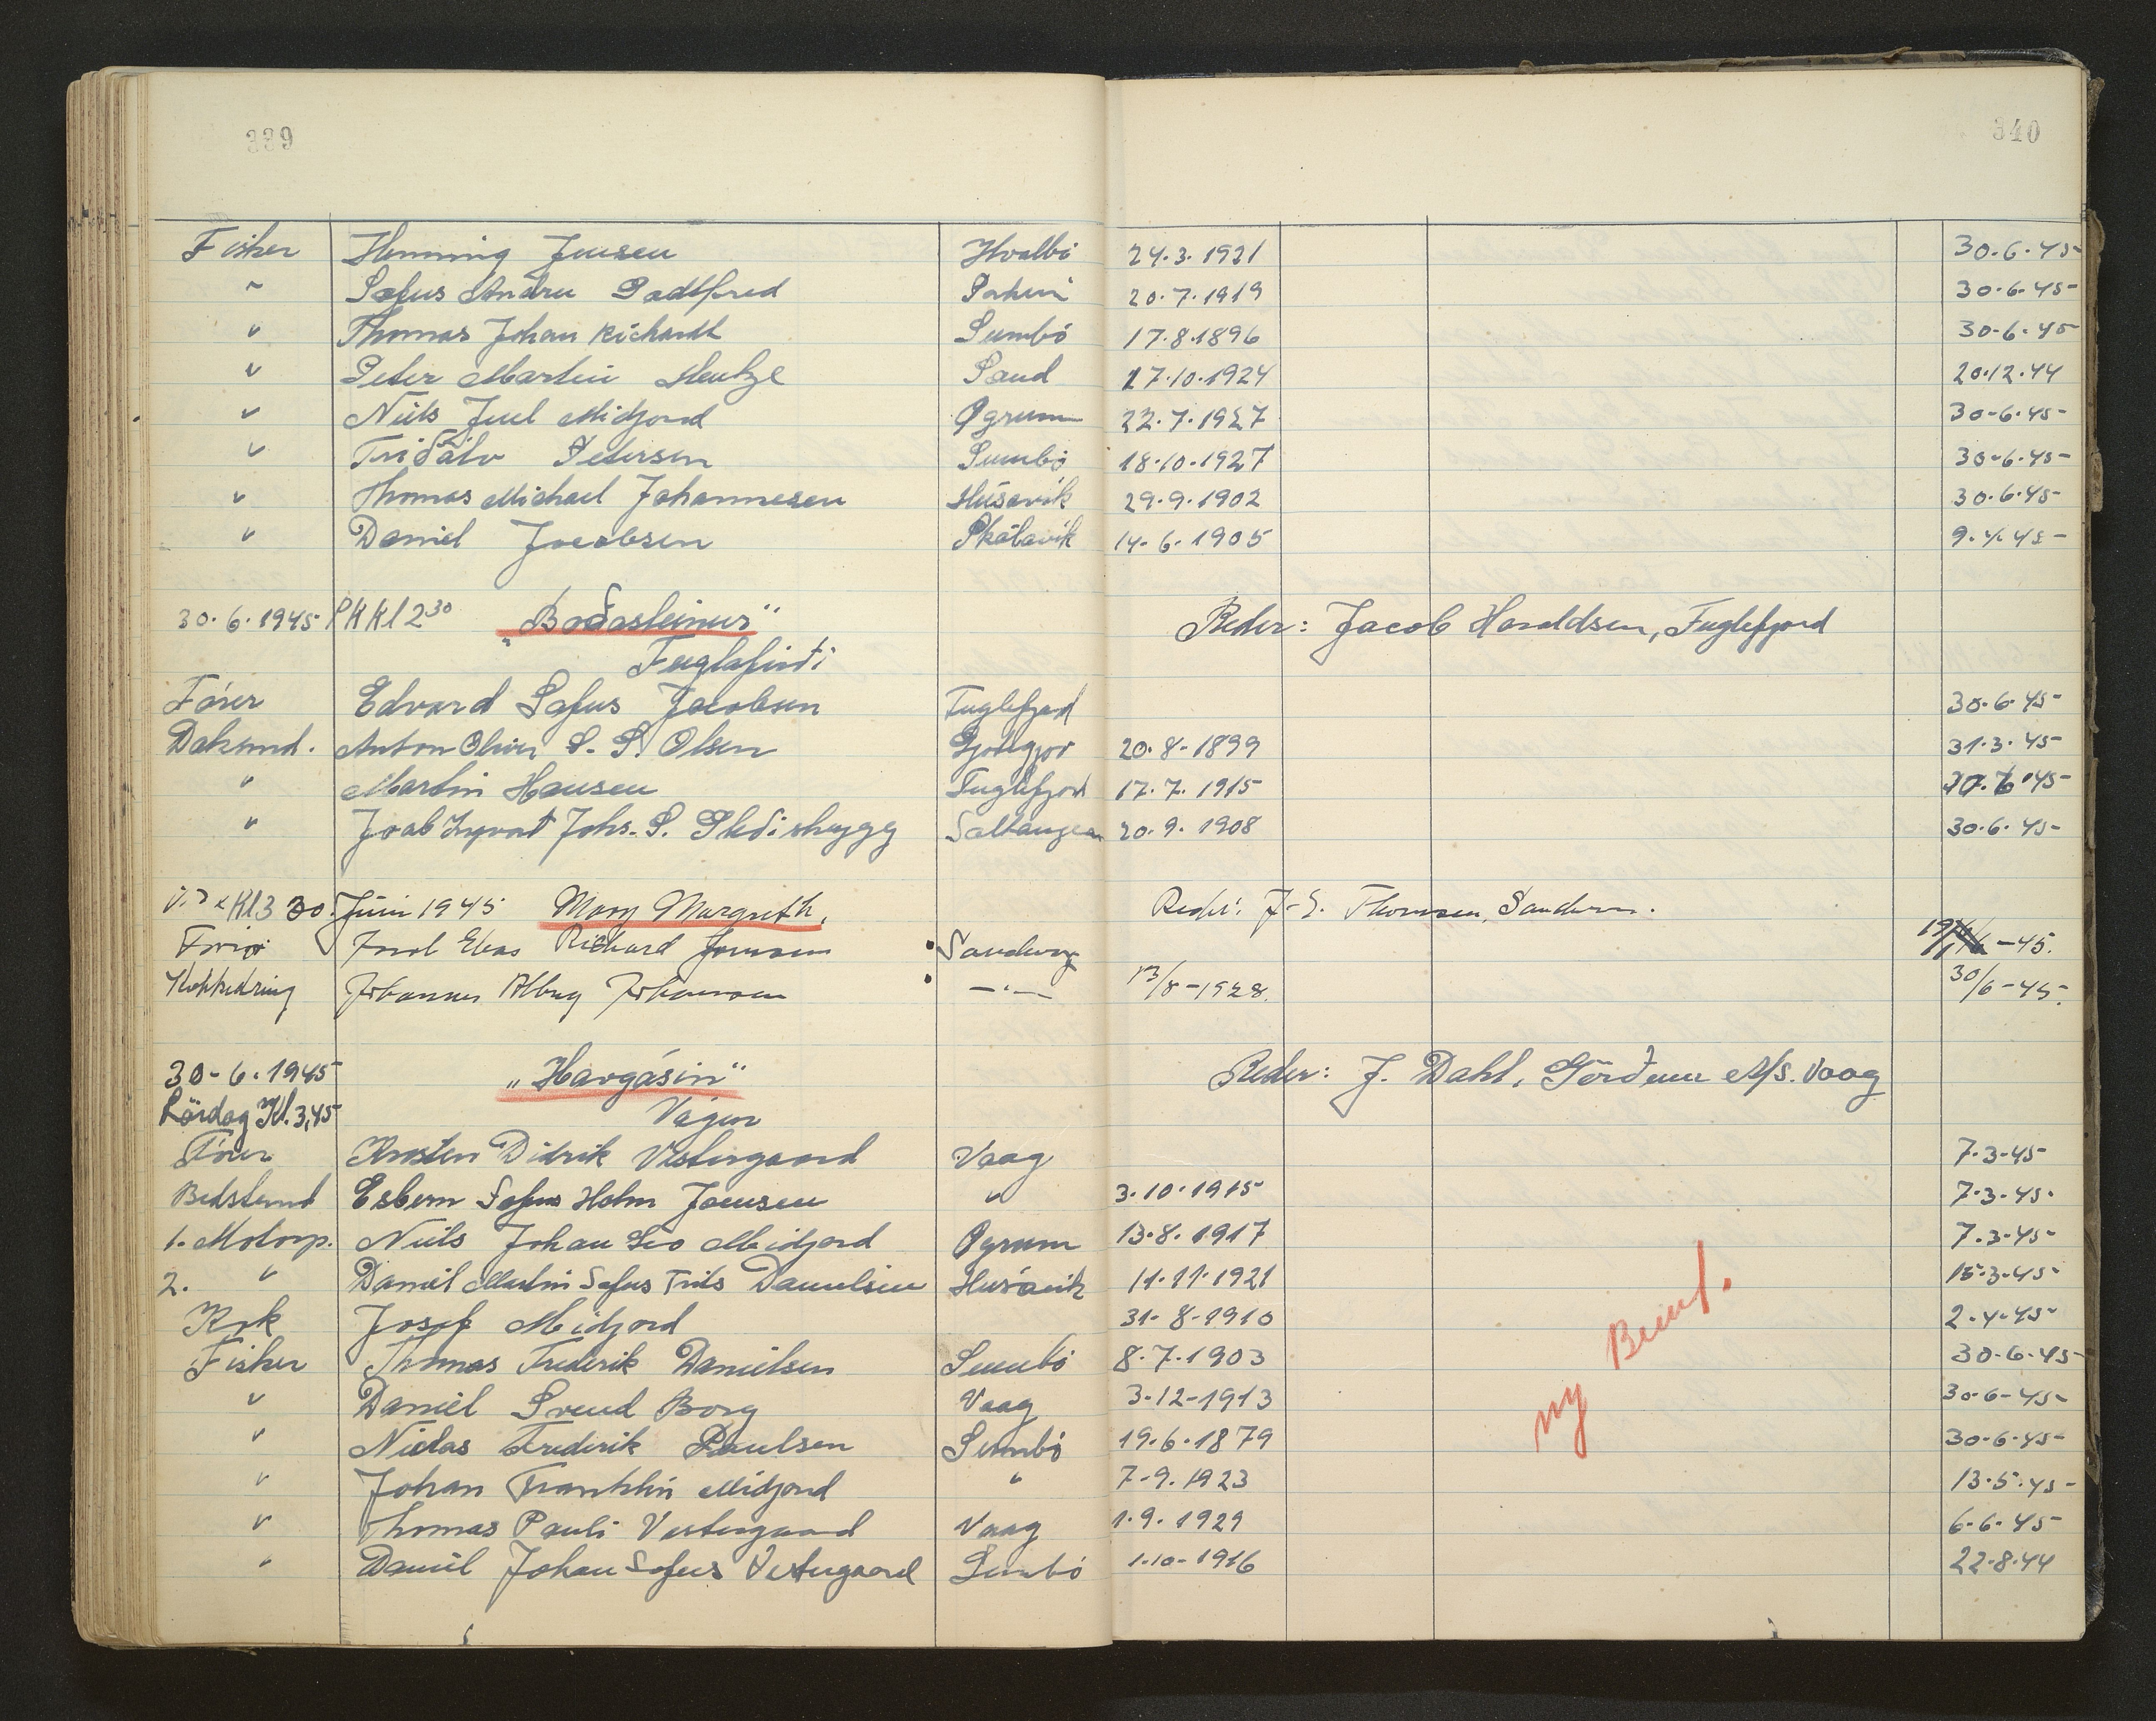 339
340
Fisker Henning Jensen Hvalbö 24.3.1921 30.6.45
" Sofus Andru Porkeri 20.7.1919 30.6.45
" Thomas Johan Richardt Sumbö 17.8.1896 30.6.45
" Peter Martin Heutze Sand 27.10.1924 20.12.44
" Niels Juel Midjord Øgrum 22.7.1927 30.6.45
" Petersen Sumbö 18.10.1927 30.6.45
" Thomas Michael Johannesen Húsavik 29.9.1902 30.6.45
" Daniel Jacobsen Skálavik 14.6.1905 9.4.45
30.6.1945 Kl 2 30 "Boðasteinur" Reder: Jacob Haraldsen, Fuglefjord
Fuglafirði
Förer Edvard Sofus Jacobsen Fuglefjord 30.6.45
Deksmd. Anton Oliver S. P. Olsen 20.8.1899 31.3.45
" Martin Hansen Fuglefjord 17.7.1915
" Johs. S. Saltangen 20.9.1908 30.6.45
Kl 3 30. Juni 1945 Mary Margreth. Reder: Thomsen,
Elias Richard Joensen -45.
Johannes Johannesen 13/8-1928. 30/6-45.
30-6.1945 "Havgásin" Reder: J. Dahl, A/s. Vaag
Lördag Kl. 3,45 Vágur
Förer Didrik Vestergaard Vaag 7-3-45
Bedstemd Esbern Sofus Holm Joensen " 3.10.1915 7-3-45.
1. Motorp. Niels Johan Leo Midjord Øgrum 13.8.1917 7.3-45
2. " Daniel Martin Sofus Danielsen Husavik 11.11.1921 15-3-45
Kok Josef Midjord 31-8-1910 2-4-45
Fisker Thomas Frederik Danielsen Sumbö 8.7.1903 30-6-45
" Daniel Svend Borg Vaag 3-12-1913 30-6-45
" Niclas Frederik Poulsen Sumbö 19.6.1879 30-6-45
" Johan Franklin Midjord " 7-9.1923 13-5.45
" Thomas Pauli Vestergaard Vaag 1.9.1929 6-6.45
" Daniel Johan Sofus Vestergaard Sumbö 1.10-1916 22-8.44
ny Bem.